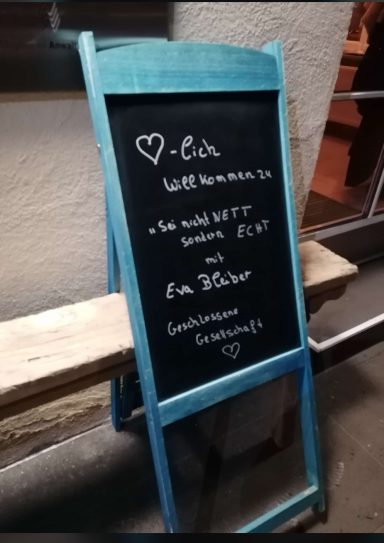 ♡-lich
Willkommen zu
"Sei nicht NETT
sondern ECHT
mit
Eva Bleiber
Geschlossene
Gesellschaft
♡